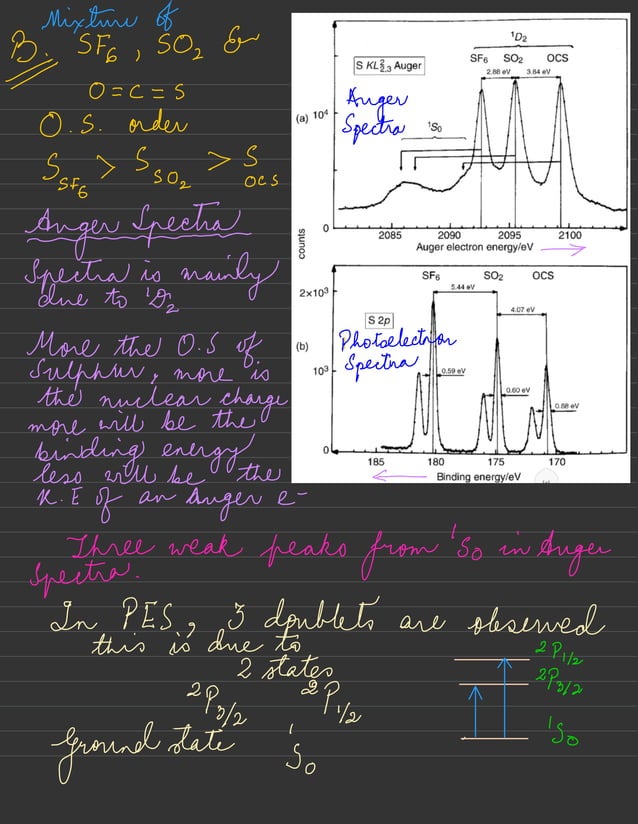 Mixture of
B. SF6, SO2 &
O=C=S
O.S. order
S SF6 > S SO2 > S OCS
Auger Spectra
Spectra is mainly
due to ¹D2
More the O.S of
Sulphur, more is
the nuclear charge
more will be the
binding energy
less will be the
K.E of an Auger e-
¹D2
S KL²2,3 Auger
SF6 SO2 OCS
2.88 eV 3.84 eV
Auger
Spectra
(a) 10⁴
¹S0
0
2085 2090 2095 2100
Auger electron energy/eV
counts
SF6 SO2 OCS
5.44 eV
2×10³
S 2p
4.07 eV
(b)
Photoelectron
Spectra
10³
0.59 eV
0.60 eV
0.58 eV
0
185 180 175 170
Binding energy/eV
Three weak peaks from ¹S0 in Auger
Spectra.
In PES, 3 doublets are observed
this is due to
2 states
²P3/2 ²P1/2
Ground state ¹S0
²P1/2
²P3/2
¹S0